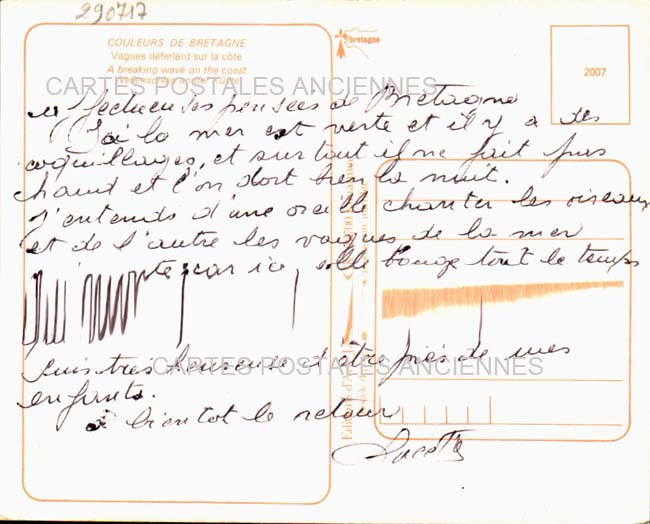 290717
COULEURS DE BRETAGNE
Vagues déferlant sur la côte
A breaking wave on the coast
bretagne
2007
CARTES POSTALES ANCIENNES
affectueuses pensées de Bretagne
Ici la mer est verte et il y a des
coquillages, et surtout il ne fait pas
chaud et l'on dort bien la nuit.
J'entends d'une oreille chanter les oiseaux
et de l'autre les vagues de la mer
qui monte, car ici, elle bouge tout le temps
suis très heureuse d'être près de mes
CARTES POSTALES ANCIENNES
enfants.
à bientot le retour